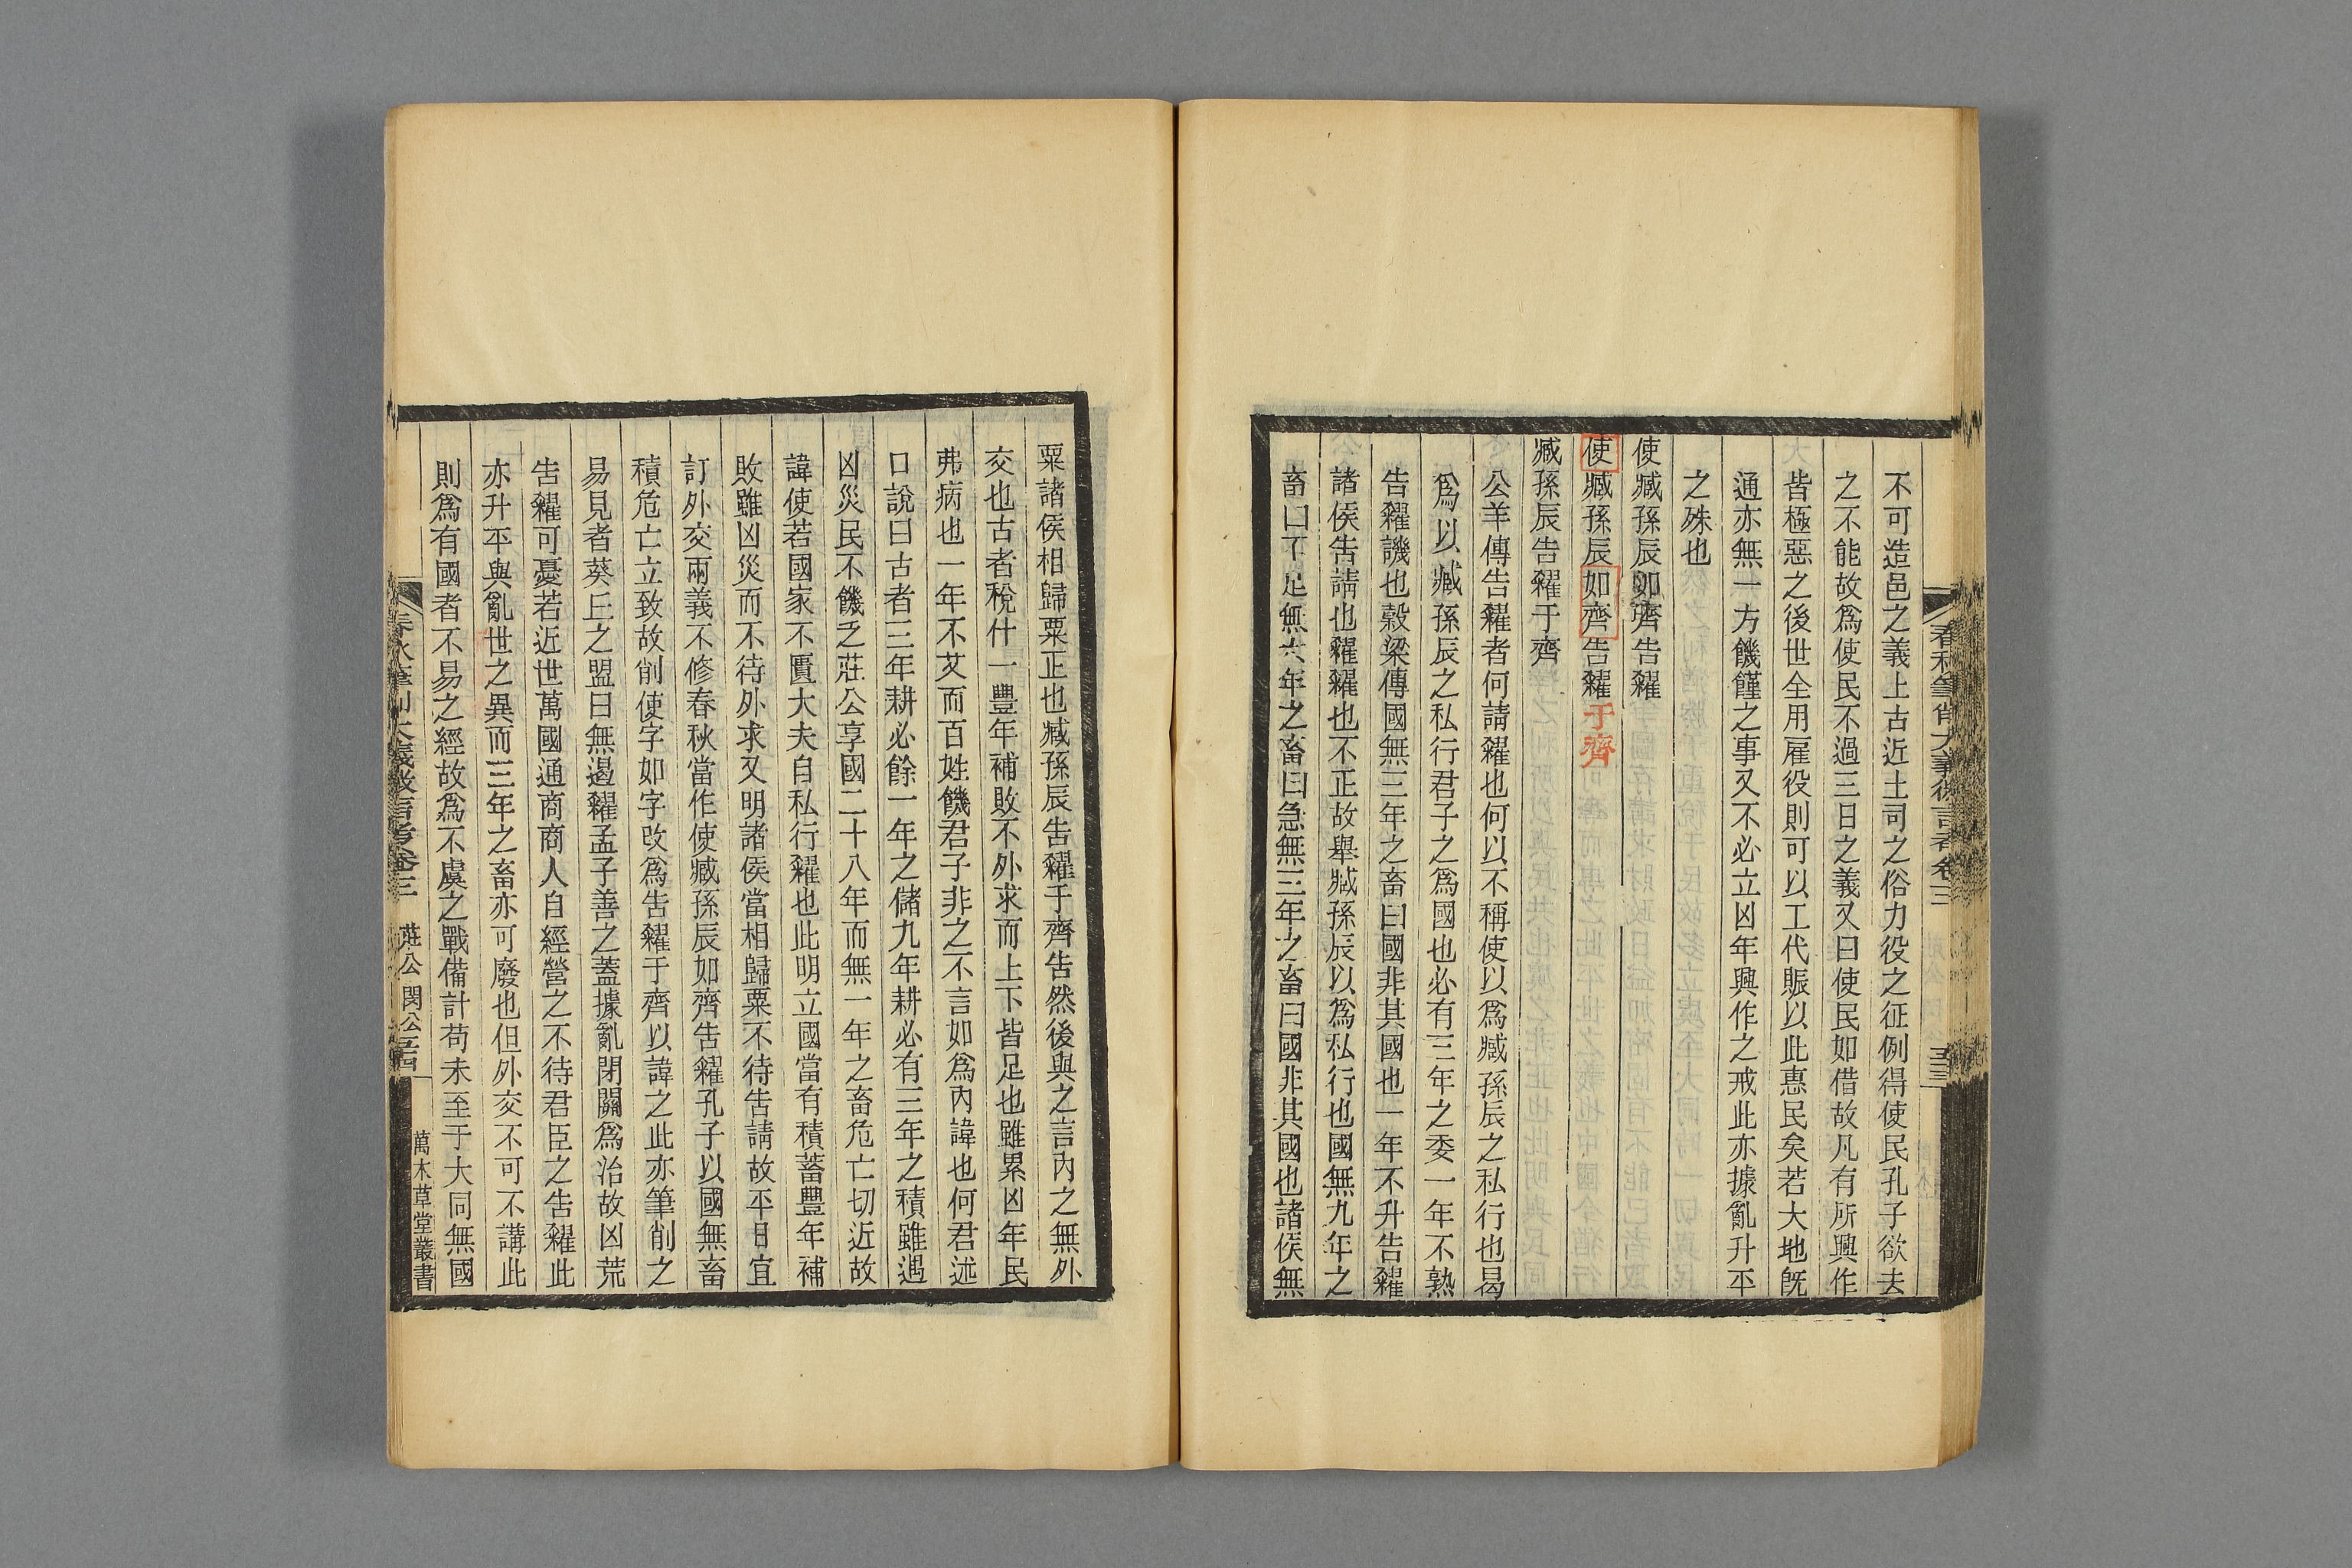 春秋筆削大義微言考卷三
不可造邑之義上古近土司之俗力役之征例得使民孔子欲去
之不能故爲使民不過三日之義又曰使民如借故凡有所興作
皆極惡之後世全用雇役則可以工代賑以此惠民矣若大地旣
通亦無一方饑饉之事又不必立凶年興作之戒此亦據亂升平
之殊也
使臧孫辰如齊告糴
使臧孫辰如齊告糴于齊
臧孫辰告糴于齊
公羊傳告糴者何請糴也何以不稱使以爲臧孫辰之私行也曷
爲以臧孫辰之私行君子之爲國也必有三年之委一年不熟
告糴譏也穀梁傳國無三年之畜曰國非其國也一年不升告糴
諸侯告請也糴糴也不正故舉臧孫辰以爲私行也國無九年之
畜曰不足無六年之畜曰急無三年之畜曰國非其國也諸侯無
粟諸侯相歸粟正也臧孫辰告糴于齊告然後與之言內之無外
交也古者稅什一豐年補敗不外求而上下皆足也雖累凶年民
弗病也一年不艾而百姓饑君子非之不言如爲內諱也何君述
口說曰古者三年耕必餘一年之儲九年耕必有三年之積雖遇
凶災民不饑乏莊公享國二十八年而無一年之畜危亡切近故
諱使若國家不匱大夫自私行糴也此明立國當有積蓄豐年補
敗雖凶災而不待外求又明諸侯當相歸粟不待告請故平日宜
訂外交兩義不修春秋當作使臧孫辰如齊告糴孔子以國無畜
積危亡立致故削使字如字改爲告糴于齊以諱之此亦筆削之
易見者葵丘之盟曰無遏糴孟子善之蓋據亂閉關爲治故凶荒
告糴可憂若近世萬國通商商人自經營之不待君臣之告糴此
亦升平與亂世之異而三年之畜亦可廢也但外交不可不講此
則爲有國者不易之經故爲不虞之戰備計苟未至于大同無國
春秋筆削大義微言考卷三 莊公 閔公 萬木草堂叢書